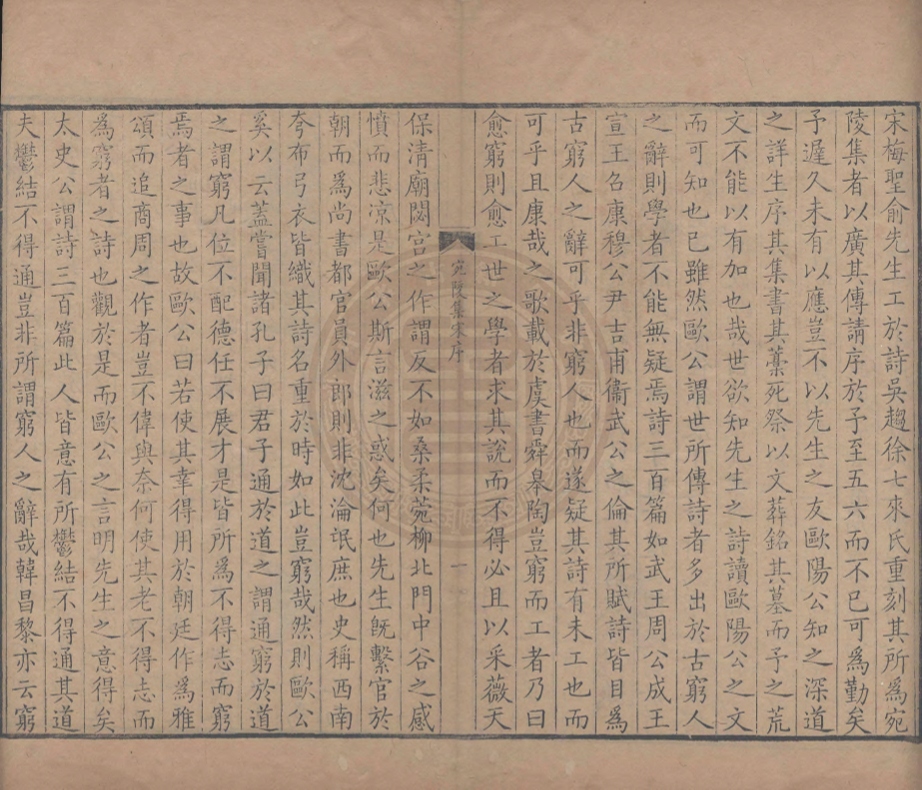 宋梅聖俞先生工於詩吳趨徐七來氏重刻其所爲宛
陵集者以廣其傳請序於予至五六而不已可爲勤矣
予遲久未有以應豈不以先生之友歐陽公知之深道
之詳生序其集書其藁死祭以文葬銘其墓而予之荒
文不能以有加也哉世欲知先生之詩讀歐陽公之文
而可知也已雖然歐公謂世所傳詩者多出於古窮人
之辭則學者不能無疑焉詩三百篇如武王周公成王
宣王召康穆公尹吉甫衞武公之倫其所賦詩皆目爲
古窮人之辭可乎非窮人也而遂疑其詩有未工也而
可乎且康哉之歌載於虞書舜皋陶豈窮而工者乃曰
愈窮則愈工世之學者求其說而不得必且以采薇天
宛陵集宋序
一
保清廟閟宮之作謂反不如桑柔菀柳北門中谷之感
憤而悲涼是歐公斯言滋之惑矣何也先生旣繫官於
朝而爲尚書都官員外郎則非沈淪氓庶也史稱西南
夸布弓衣皆織其詩名重於時如此豈窮哉然則歐公
奚以云蓋嘗聞諸孔子曰君子通於道之謂通窮於道
之謂窮凡位不配德任不展才是皆所爲不得志而窮
焉者之事也故歐公曰若使其幸得用於朝廷作爲雅
頌而追商周之作者豈不偉與奈何使其老不得志而
爲窮者之詩也觀於是而歐公之言明先生之意得矣
太史公謂詩三百篇此人皆意有所鬱結不得通其道
夫鬱結不得通豈非所謂窮人之辭哉韓昌黎亦云窮